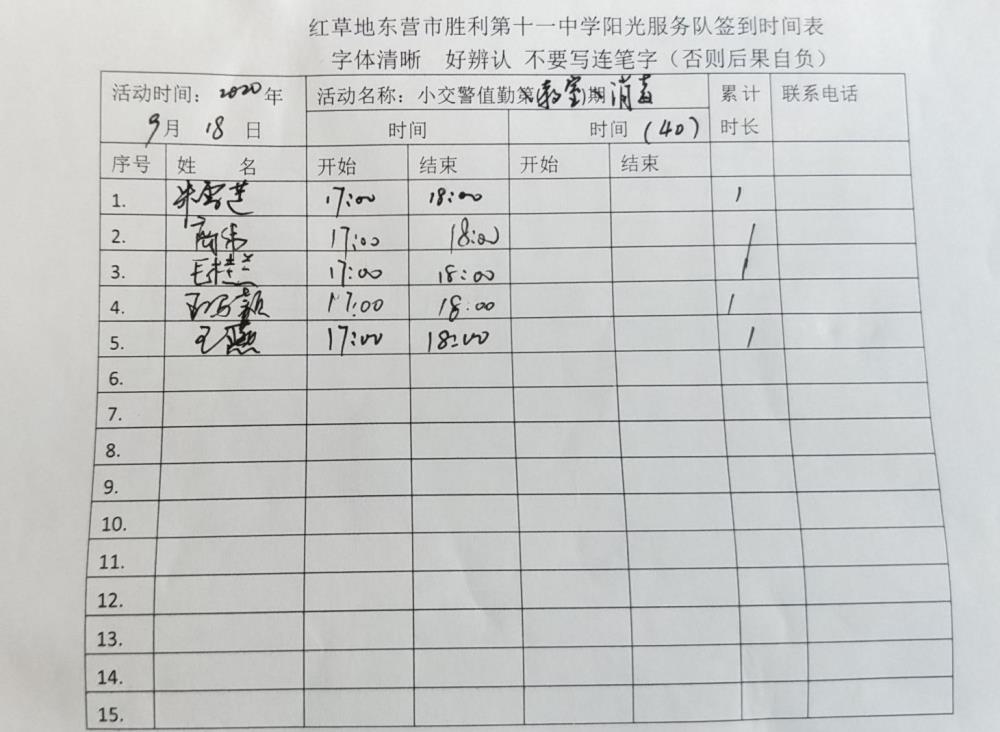 红草地东营市胜利第十一中学阳光服务队签到时间表
字体清晰 好辨认 不要写连笔字（否则后果自负）
活动时间：2020年 活动名称：小交警值勤第(教室)期 消毒 累计 联系电话
9月 18日 时间 时间 (40) 时长
序号 姓 名 开始 结束 开始 结束
1. 朱雪莲 17:00 18:00 1
2. 17:00 18:00 1
3. 王桂兰 17:00 18:00 1
4. 17:00 18:00 1
5. 王燕 17:00 18:00 1
6.
7.
8.
9.
10.
11.
12.
13.
14.
15.